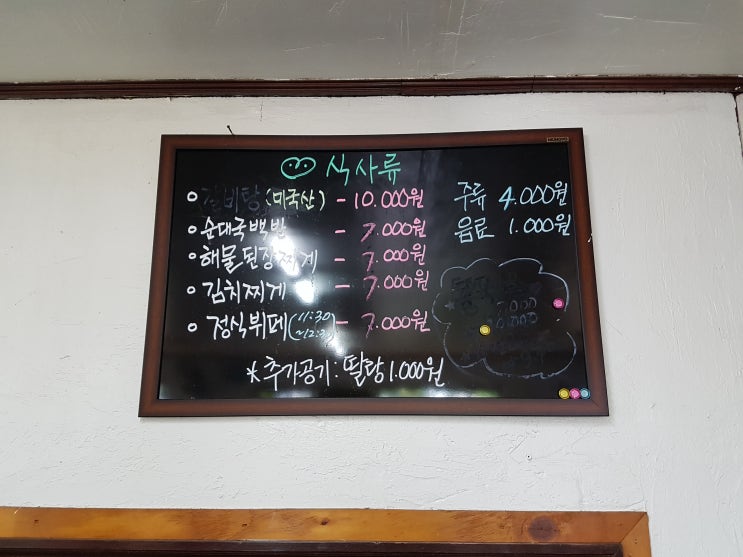 식사류
갈비탕 (미국산) - 10.000원
순대국백반 - 7.000원
해물된장찌게 - 7.000원
김치찌게 - 7.000원
정식뷔페 (11:30 - 7.000원
*추가공기:딸랑1.000원
주류 4.000원
음료 1.000원